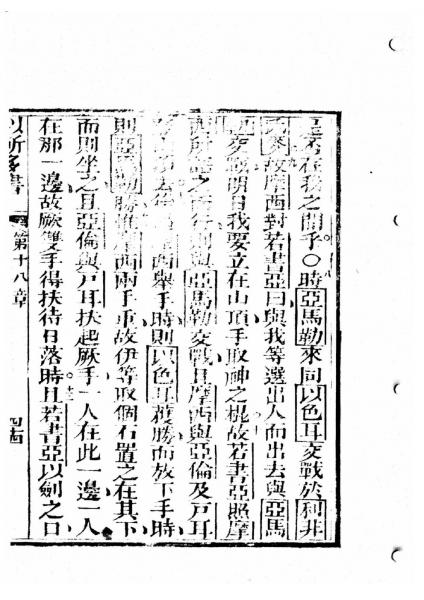 在我之間乎○時亞馬勒來同以色耳交戰於利非
故摩西對若書亞曰與我等選出人而出去與亞馬
交戰明日我要立在山頂手取神之棍故若書亞照摩
西所之而行則與亞馬勒交戰且摩西與亞倫及戶耳
去西舉手時則以色耳獲勝而放下手時
則亞馬勒勝惟摩西兩手重故伊等取個石置之在其下
而則坐之且亞倫與戶耳扶起厥手一人在此一邊一人
在那一邊故厥雙手得扶待日落時且若書亞以劍之口
以所多書 第十八章